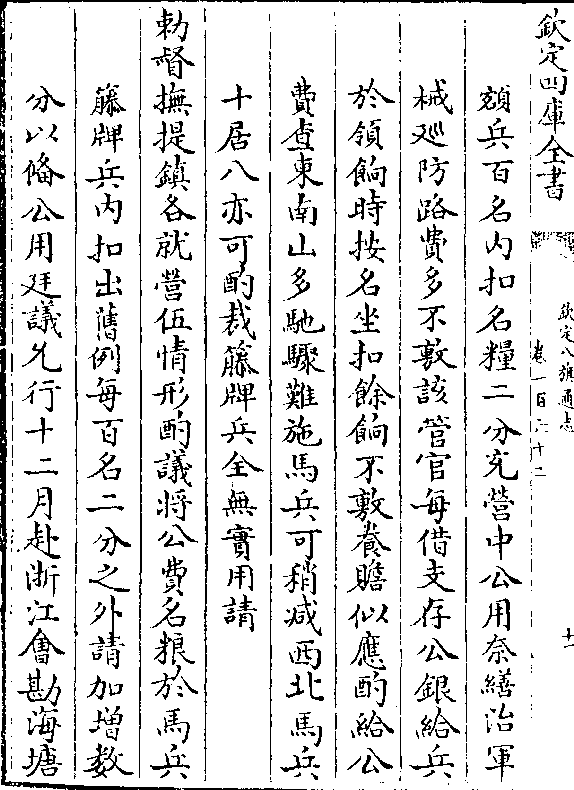 欽定四庫全書
欽定八旗通志
卷一百六十二
十一
額兵百名内扣名糧二分充營中公用奈繕治軍
械廵防路費多不敷該管官每借支存公銀給兵
於領餉時按名坐扣餘餉不敷養贍似應酌給公
費查東南山多馳驟難施馬兵可稍减西北馬兵
十居八亦可酌裁籐牌兵全無實用請
勅督撫提鎮各就營伍情形酌議將公費名粮於馬兵
籐牌兵内扣出舊例每百名二分之外請加增數
分以備公用廷議允行十二月赴浙江會勘海塘